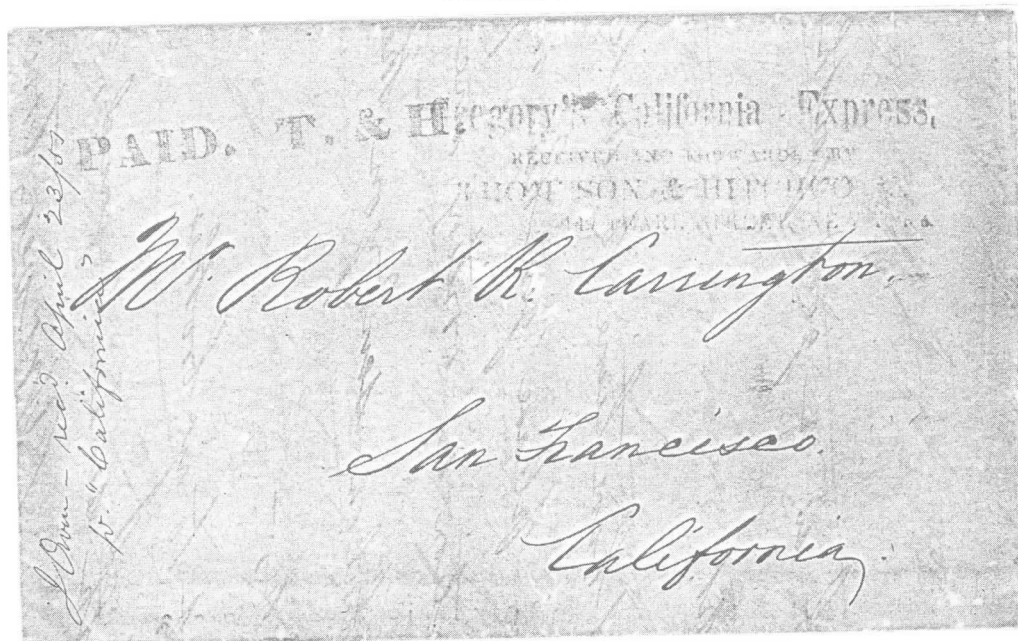 PAID. T. & H.
Gregory's California Express,
RECEIVED AND FORWARDED BY
THOMPSON & HITCHCOCK
PEARL STREET, NEW
Mr. Robert R. Carrington.
San Francisco.
California.
rec'd April 23/50
p. "California"